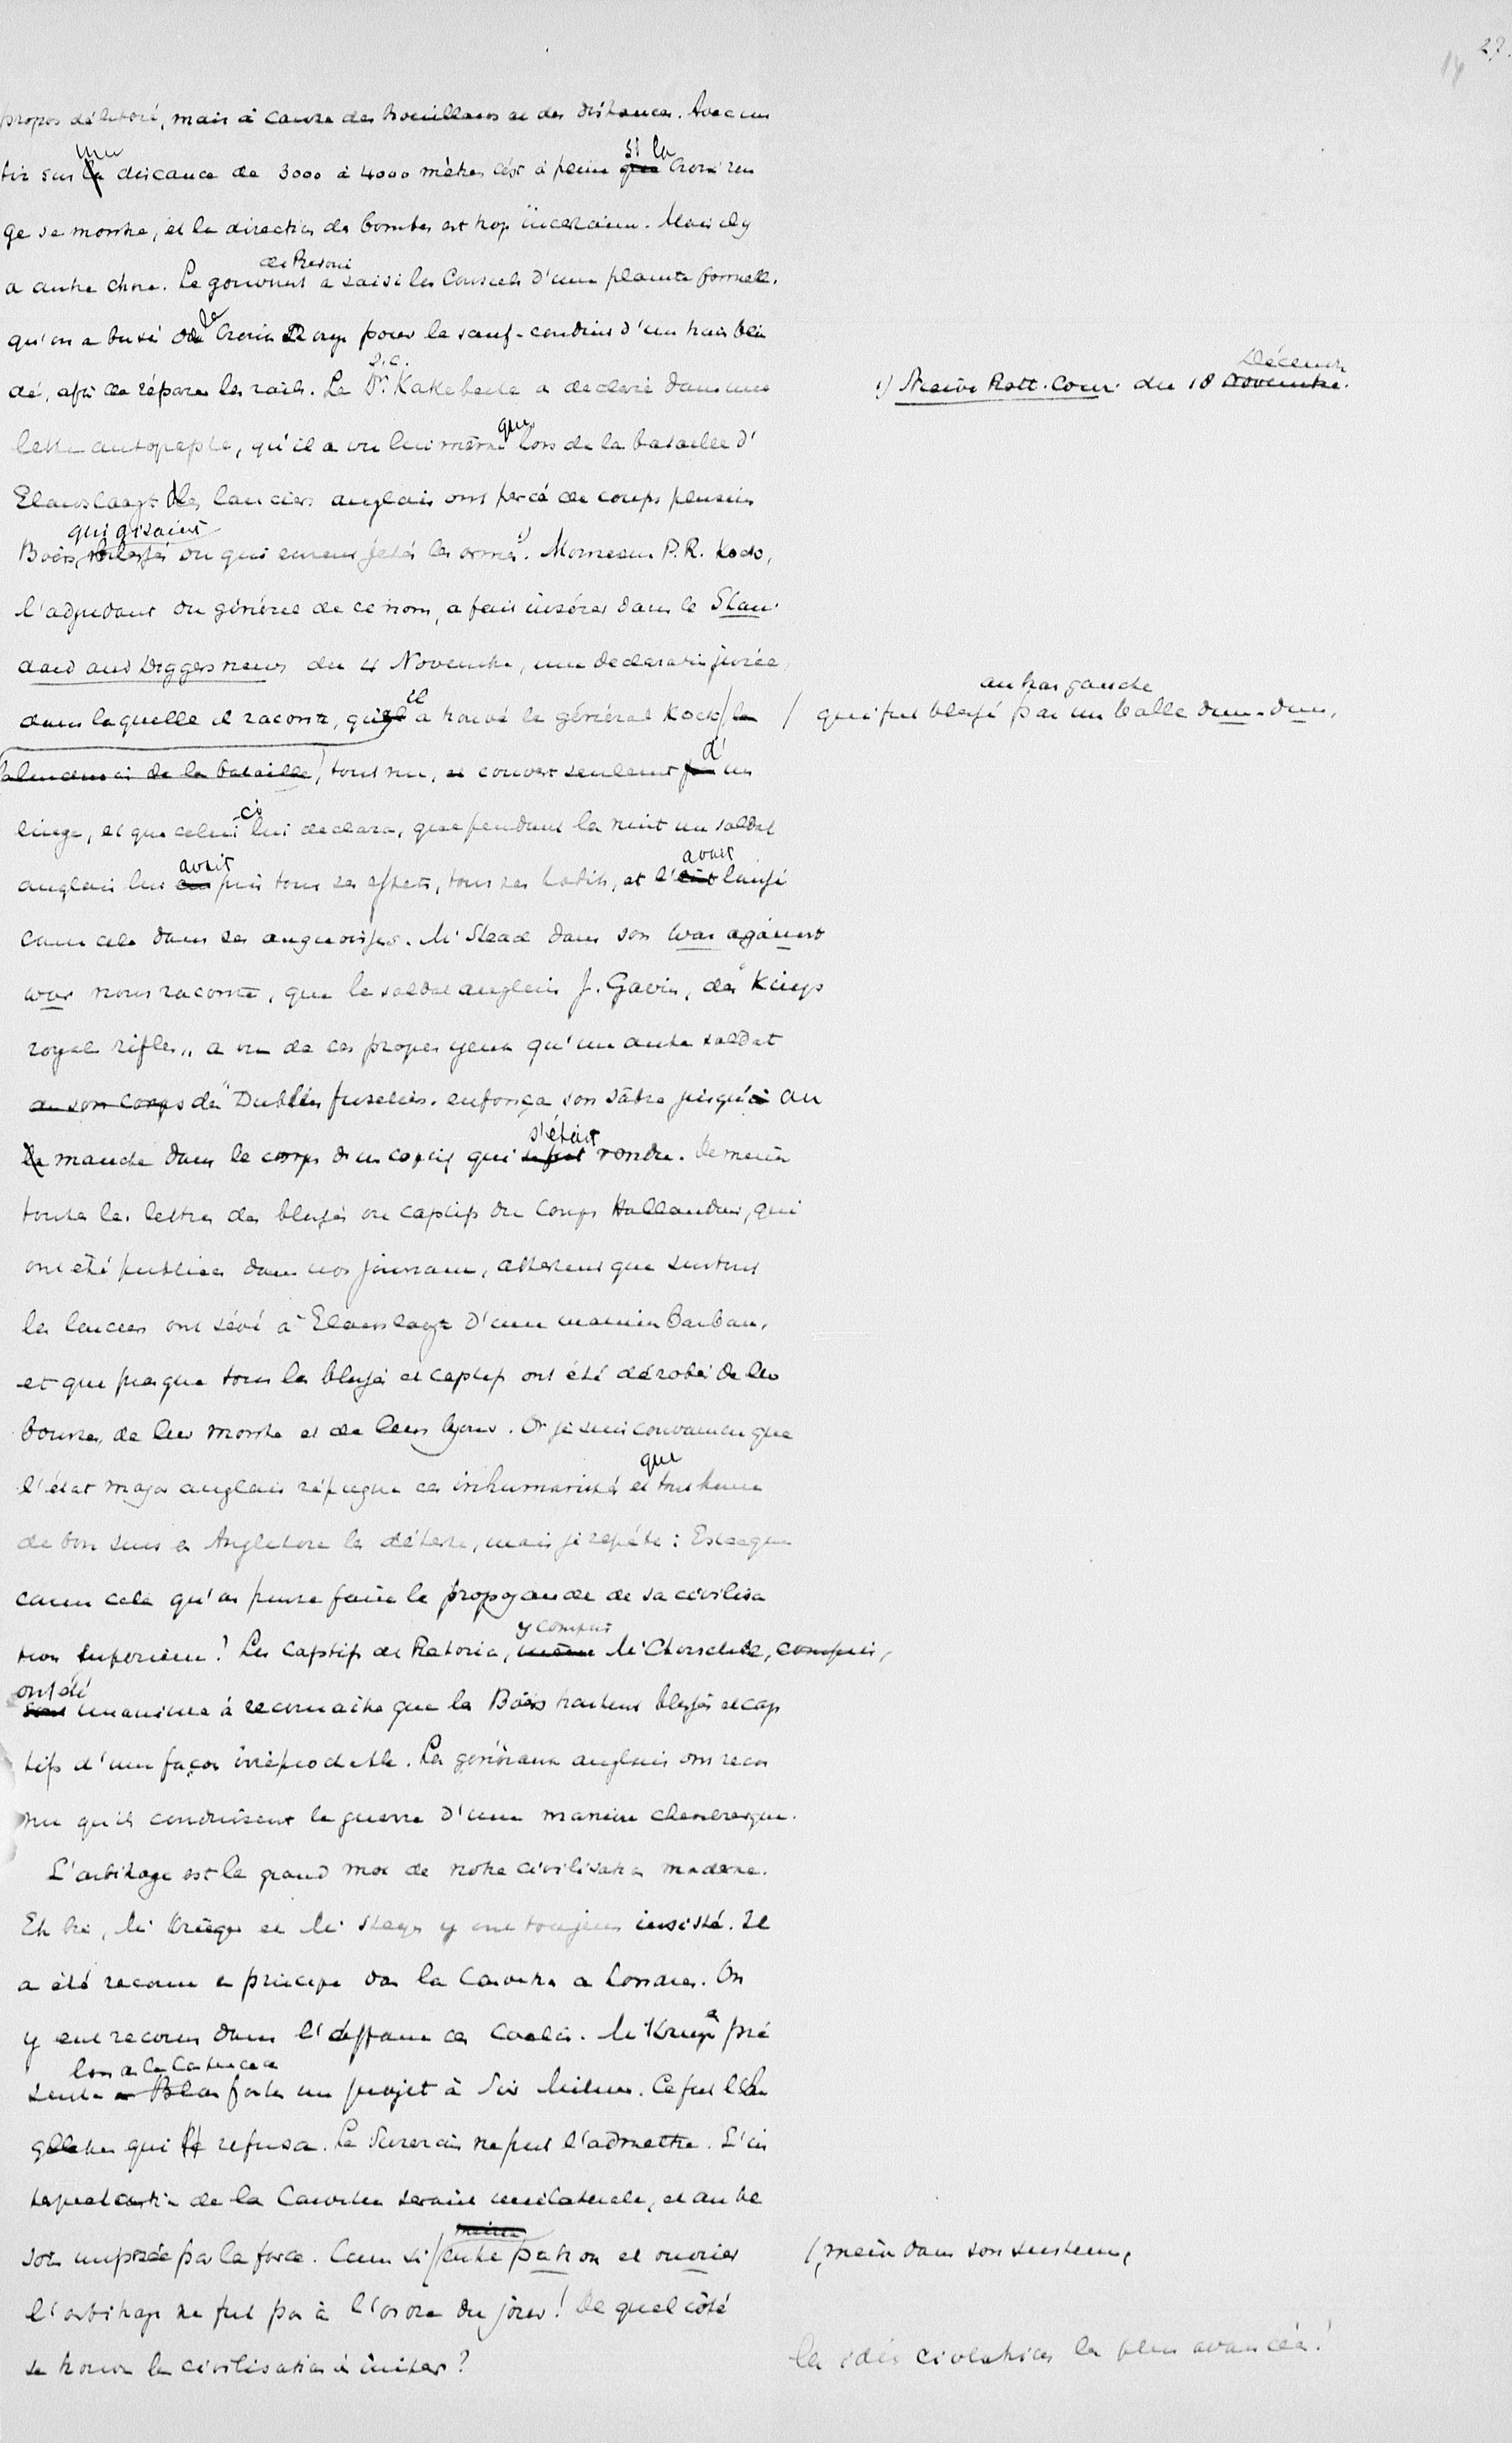 27.
14
propos délibéré, mais à cause des brouillards et des distances. Avec un
tir sur une distance de 3000 à 4000 mètres c'est à peine si la Croix rou
ge se montre, et la direction des bombes est trop incertaine. Mais il y
a autre chose. Le gouvernt de Pretoria a saisi les Consuls d'une plainte formelle,
qu'on a busé de la Croix Rouge pour le sauf-conduit d'un train blin
dé, afin de réparer les rails. Le Dr. s.c. Kakebeeke a déclaré dans une
lettre autographe, qu'il a vu lui même que lors de la bataille d'
Elandslaagt des lanciers anglais ont percé de coups plusieurs
Boërs, qui gisaient blessés ou qui avaient jetés les armes 1). Monsieur P.R. Kock,
1) Nieuwe Rott. Cour. du 18 Novembre. Décembre
l'adjudant du général de ce nom, a fait insérer dans le Stan
dard and Diggersnews du 4 Novembre, une déclaration jurée,
dans laquelle il raconte, qu'il a trouvé le général Kock / le
/ qui fut blessé au bras gauche par une balle dum-dum,
lendemain de la bataille, tout nu, et couvert seulement d'un
linge, et que celui-ci lui déclara, que pendant la nuit un soldat
anglais lui avait pris tous ses effets, tous ses habits, et l'avait laissé
comme cela dans ses angoisses. Mr Stead dans son War against
war nous raconte, que le soldat anglais J. Gavin, des "Kings
royal rifles" a vu de ses propres yeux qu'un autre soldat
de son corps des "Dublin fuseliers" enfonça son sabre jusqu'à au
la manche dans le corps d'un captif qui se fut s'était rendu. De même
toutes les lettres des blessés ou captifs du Corps Hollandais, qui
ont été publiées dans nos journaux, attestent que surtout
les lanciers ont sévi à Elandslaagt d'une manière Barbare,
et que presque tous les blessés et captifs ont été dérobés de leur
bourse, de leur montre et de leurs bijoux. Or je suis convaincu que
l'état major anglais répugne ces inhumanités et que tout homme
de bon sens en Angleterre les déteste, mais je repète: Est-ce que
comme cela qu'on pense faire la propogande de sa civilisa
tion supérieure? Les captifs de Pretoria, même y compris Mr Churchill, compris,
sont ont été unanimes à reconnaître que les Boërs traitent blessés et cap
tifs d'une façon irréprochable. Les généraux anglais ont recon
nu qu'ils conduisent la guerre d'une manière chevaleresque.
L'arbitrage est le grand mot de notre civilisation moderne.
Eh bien, Mr Krüger et Mr Steyn y ont toujours insisté. Il
a été reconnu en principe dans la Convention de Londres. On
y eut recours dans l'affaire des Coolies. Mr Kruger a pré
senté lors de la Conférence de Bloemfontein un projet à Sir Milner. Ce fut l'An
gleterre qui s'y refusa. Le Suzerain ne peut l'admettre. L'in
terprétation de la Convention serait unilatérale, et au be
soin imposée par la force. Comme si / entre patron et ouvrier
/, même dans son système,
l'arbitrage ne fut pas à l'ordre du jour! De quel côté
se trouve la civilisation à imiter?
les idées civilatrices les plus avancées!